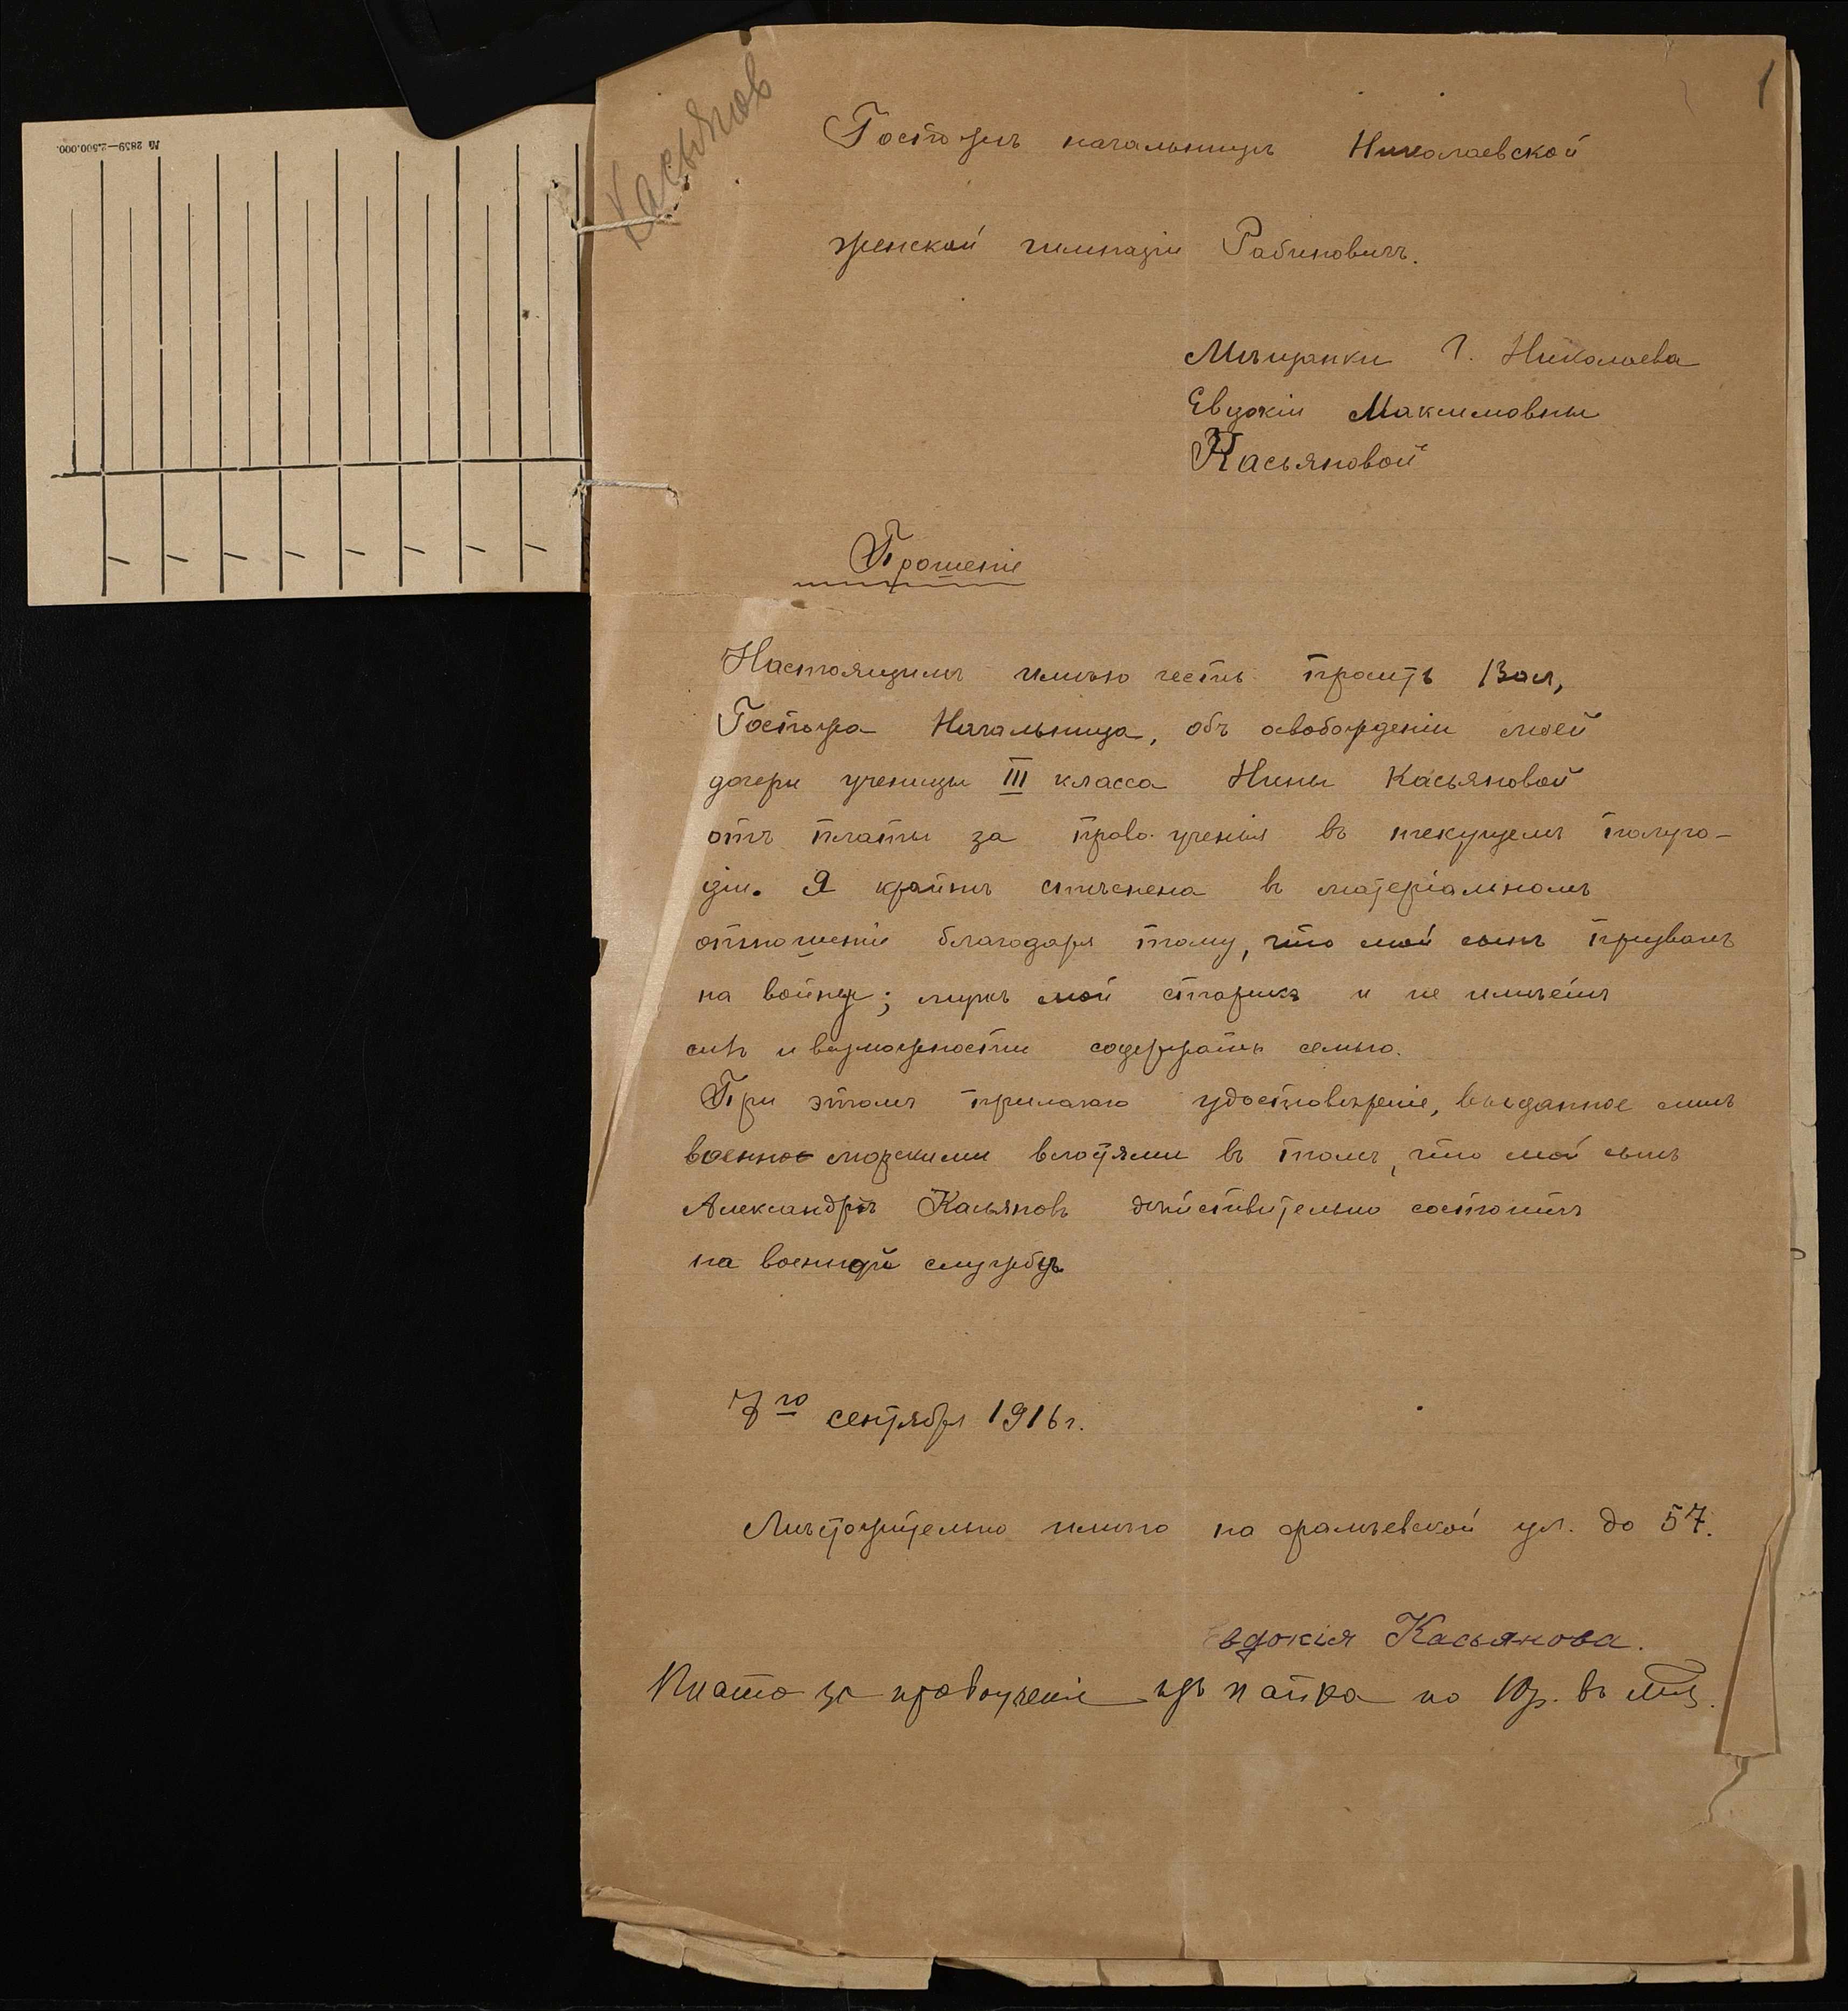 1
Касьянов
№ 2859—2.500.000.
Госпожѣ начальницѣ Николаевской
женской гимназіи Рабиновичъ.
Мѣщанки Г. Николаева
Евдокіи Максимовны
Касьяновой
Прошеніе
Настоящимъ имѣю честь просить Васъ,
Госпожа Начальница, объ освобожденіи моей
дочери ученицы III класса Нины Касьяновой
отъ платы за право ученія въ текущемъ полуго-
діи. Я крайнѣ стѣснена въ матеріальномъ
отношеніи благодаря тому, что мой сынъ призванъ
на войну; мужъ мой старикъ и не имѣетъ
силъ и возможности содержать семью.
При этомъ прилагаю удостовѣреніе, выданное мнѣ
военно морскими властями въ томъ, что мой сынъ
Александръ Касьяновъ дѣйствительно состоитъ
на военной службѣ
7го сентября 1916 г.
Мѣстожительно имѣю на фалѣевской ул. до 57.
Евдокія Касьянова.
Плата за правоученіе по 10 р. въ